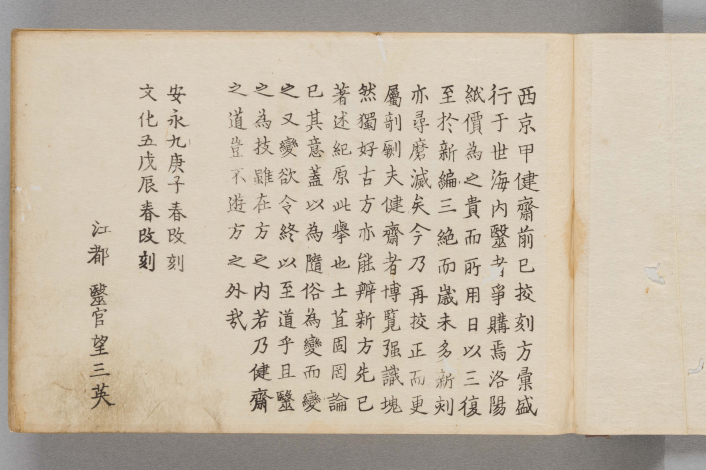 西京甲健齋前已挍刻方彙盛
行于世海內醫者爭購焉洛陽
紙價為之貴而所用日以三復
至於新編三絶而歲未多新刻
亦尋磨滅矣今乃再挍正而更
屬剞劂夫健齋者博覽强識塊
然獨好古方亦能辨新方先已
著述紀原此擧也土苴固罔論
已其意蓋以為隨俗為變而變
之又變欲令終以至道乎且毉
之為技雖在方之內若乃健齋
之道豈不遊方之外哉
安永九庚子春改刻
文化五戊辰春改刻
江都 毉官望三英